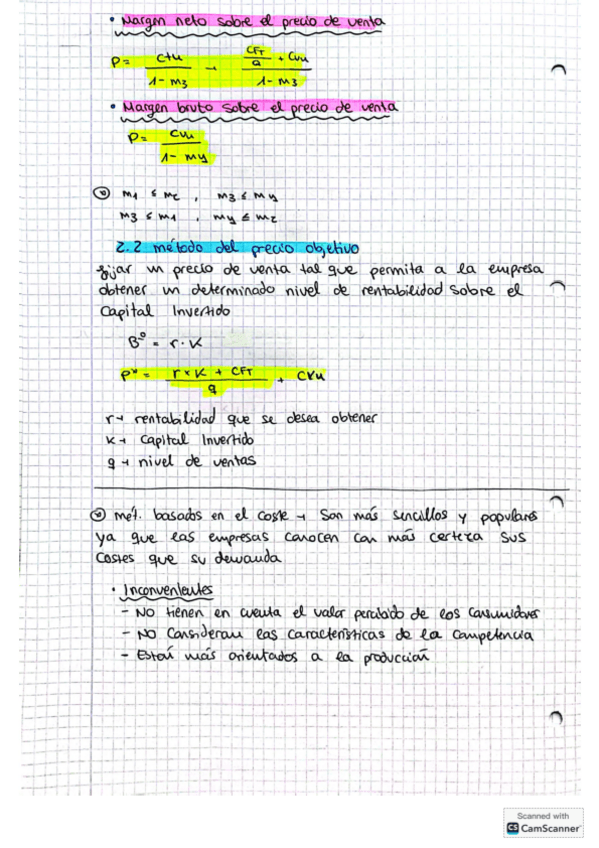 • Margen neto sobre el precio de venta
P = CTu / 1 - m3 → CFT / Q + CVu / 1 - m3
• Margen bruto sobre el precio de venta
P = CVu / 1 - my
m1 ≤ m2 , m3 ≤ my
m3 ≤ m1 , my ≤ m2
2.2 método del precio objetivo
fijar un precio de venta tal que permita a la empresa
obtener un determinado nivel de rentabilidad sobre el
Capital Invertido
Bº = r · K
P* = r x K + CFT / q + CVu
r → rentabilidad que se desea obtener
K → Capital Invertido
q → nivel de ventas
mét. basados en el coste → Son más sencillos y populares
ya que las empresas conocen con más certeza sus
costes que su demanda
• Inconvenientes
- No tienen en cuenta el valor percibido de los consumidores
- No Consideran las características de la competencia
- Están más orientados a la producción
Scanned with
CS CamScanner